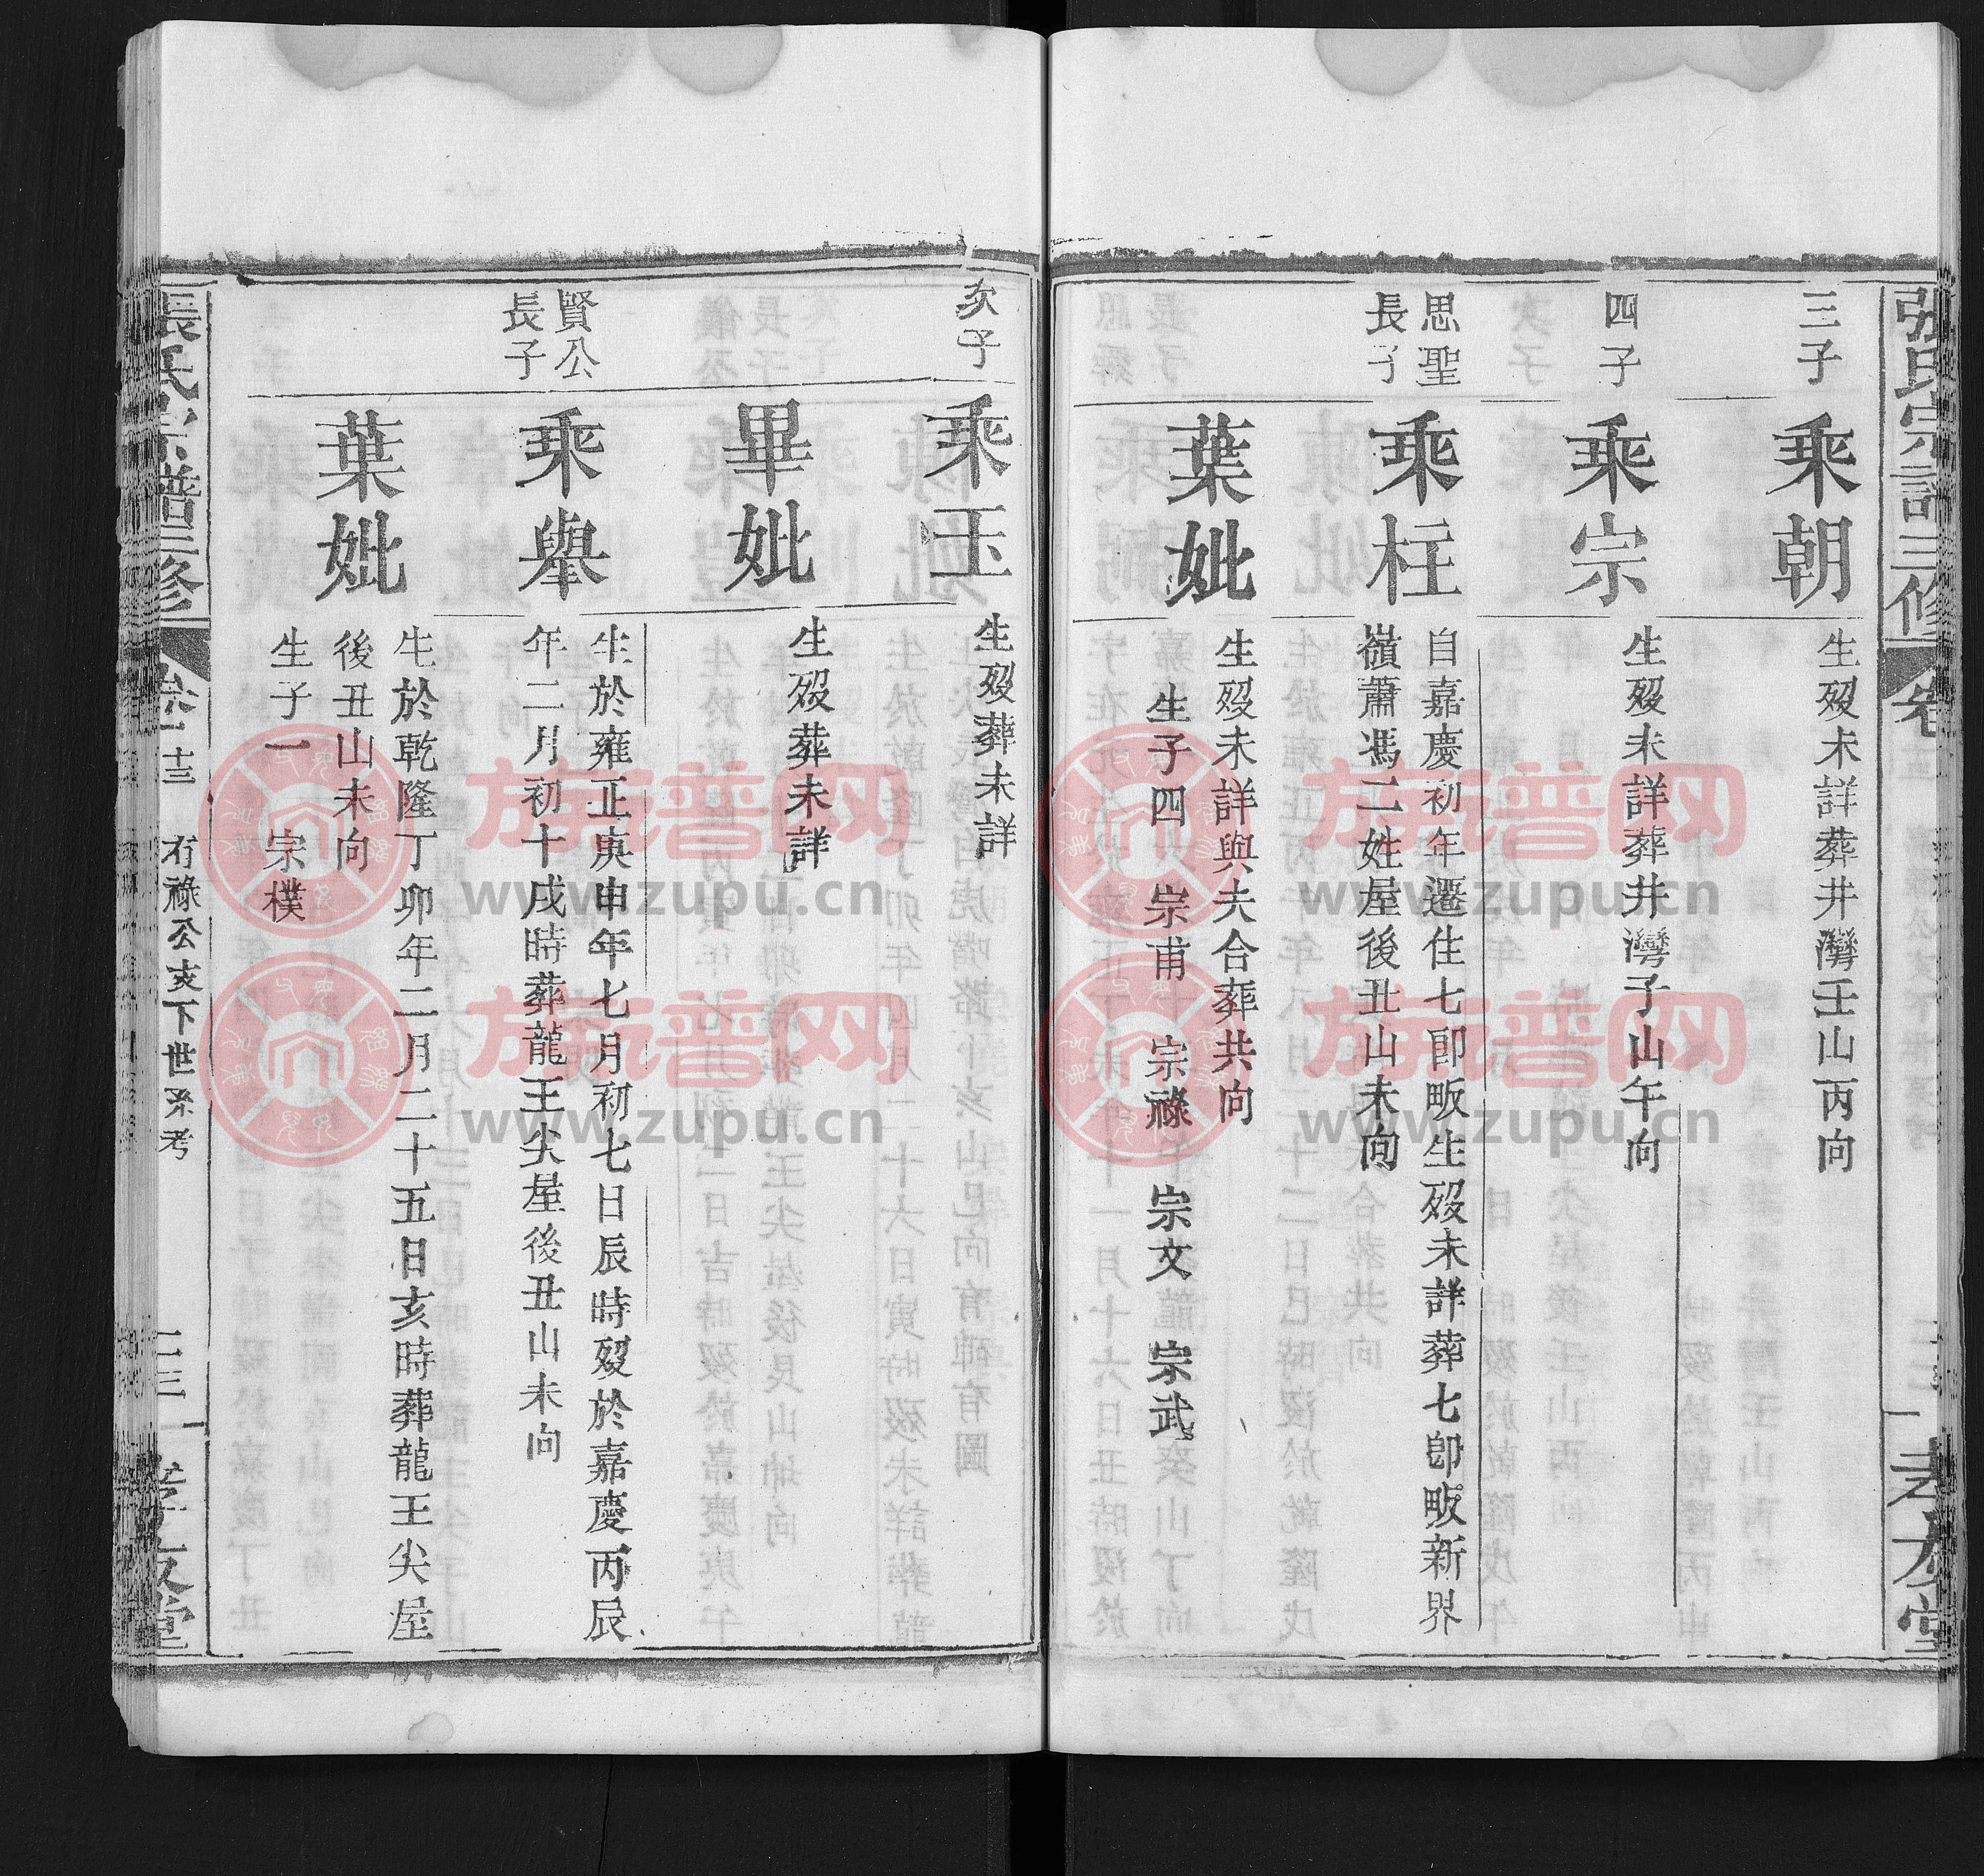 張氏宗譜三修
卷
孝友堂
三子
乘朝
生歿未詳葬井灣壬山丙向
四子
乘宗
生歿未詳葬井灣子山午向
思聖
長子
乘柱
自嘉慶初年遷住七郎畈生歿未詳葬七郎畈新界
嶺蕭馮二姓屋後丑山未向
葉妣
生歿未詳與夫合葬共向
生子四 宗甫 宗祿 宗文 宗武
次子
乘玉
生歿葬未詳
畢妣
生歿葬未詳
賢公
長子
乘舉
生於雍正庚申年七月初七日辰時歿於嘉慶丙辰
年二月初十戌時葬龍王尖屋後丑山未向
葉妣
生於乾隆丁卯年二月二十五日亥時葬龍王尖屋
後丑山未向
生子一 宗樸
張氏宗譜三修
卷十三 有祿公亥下世系考
二三
孝友堂
族譜网
www.zupu.cn
族譜网
www.zupu.cn
族譜网
www.zupu.cn
族譜网
www.zupu.cn